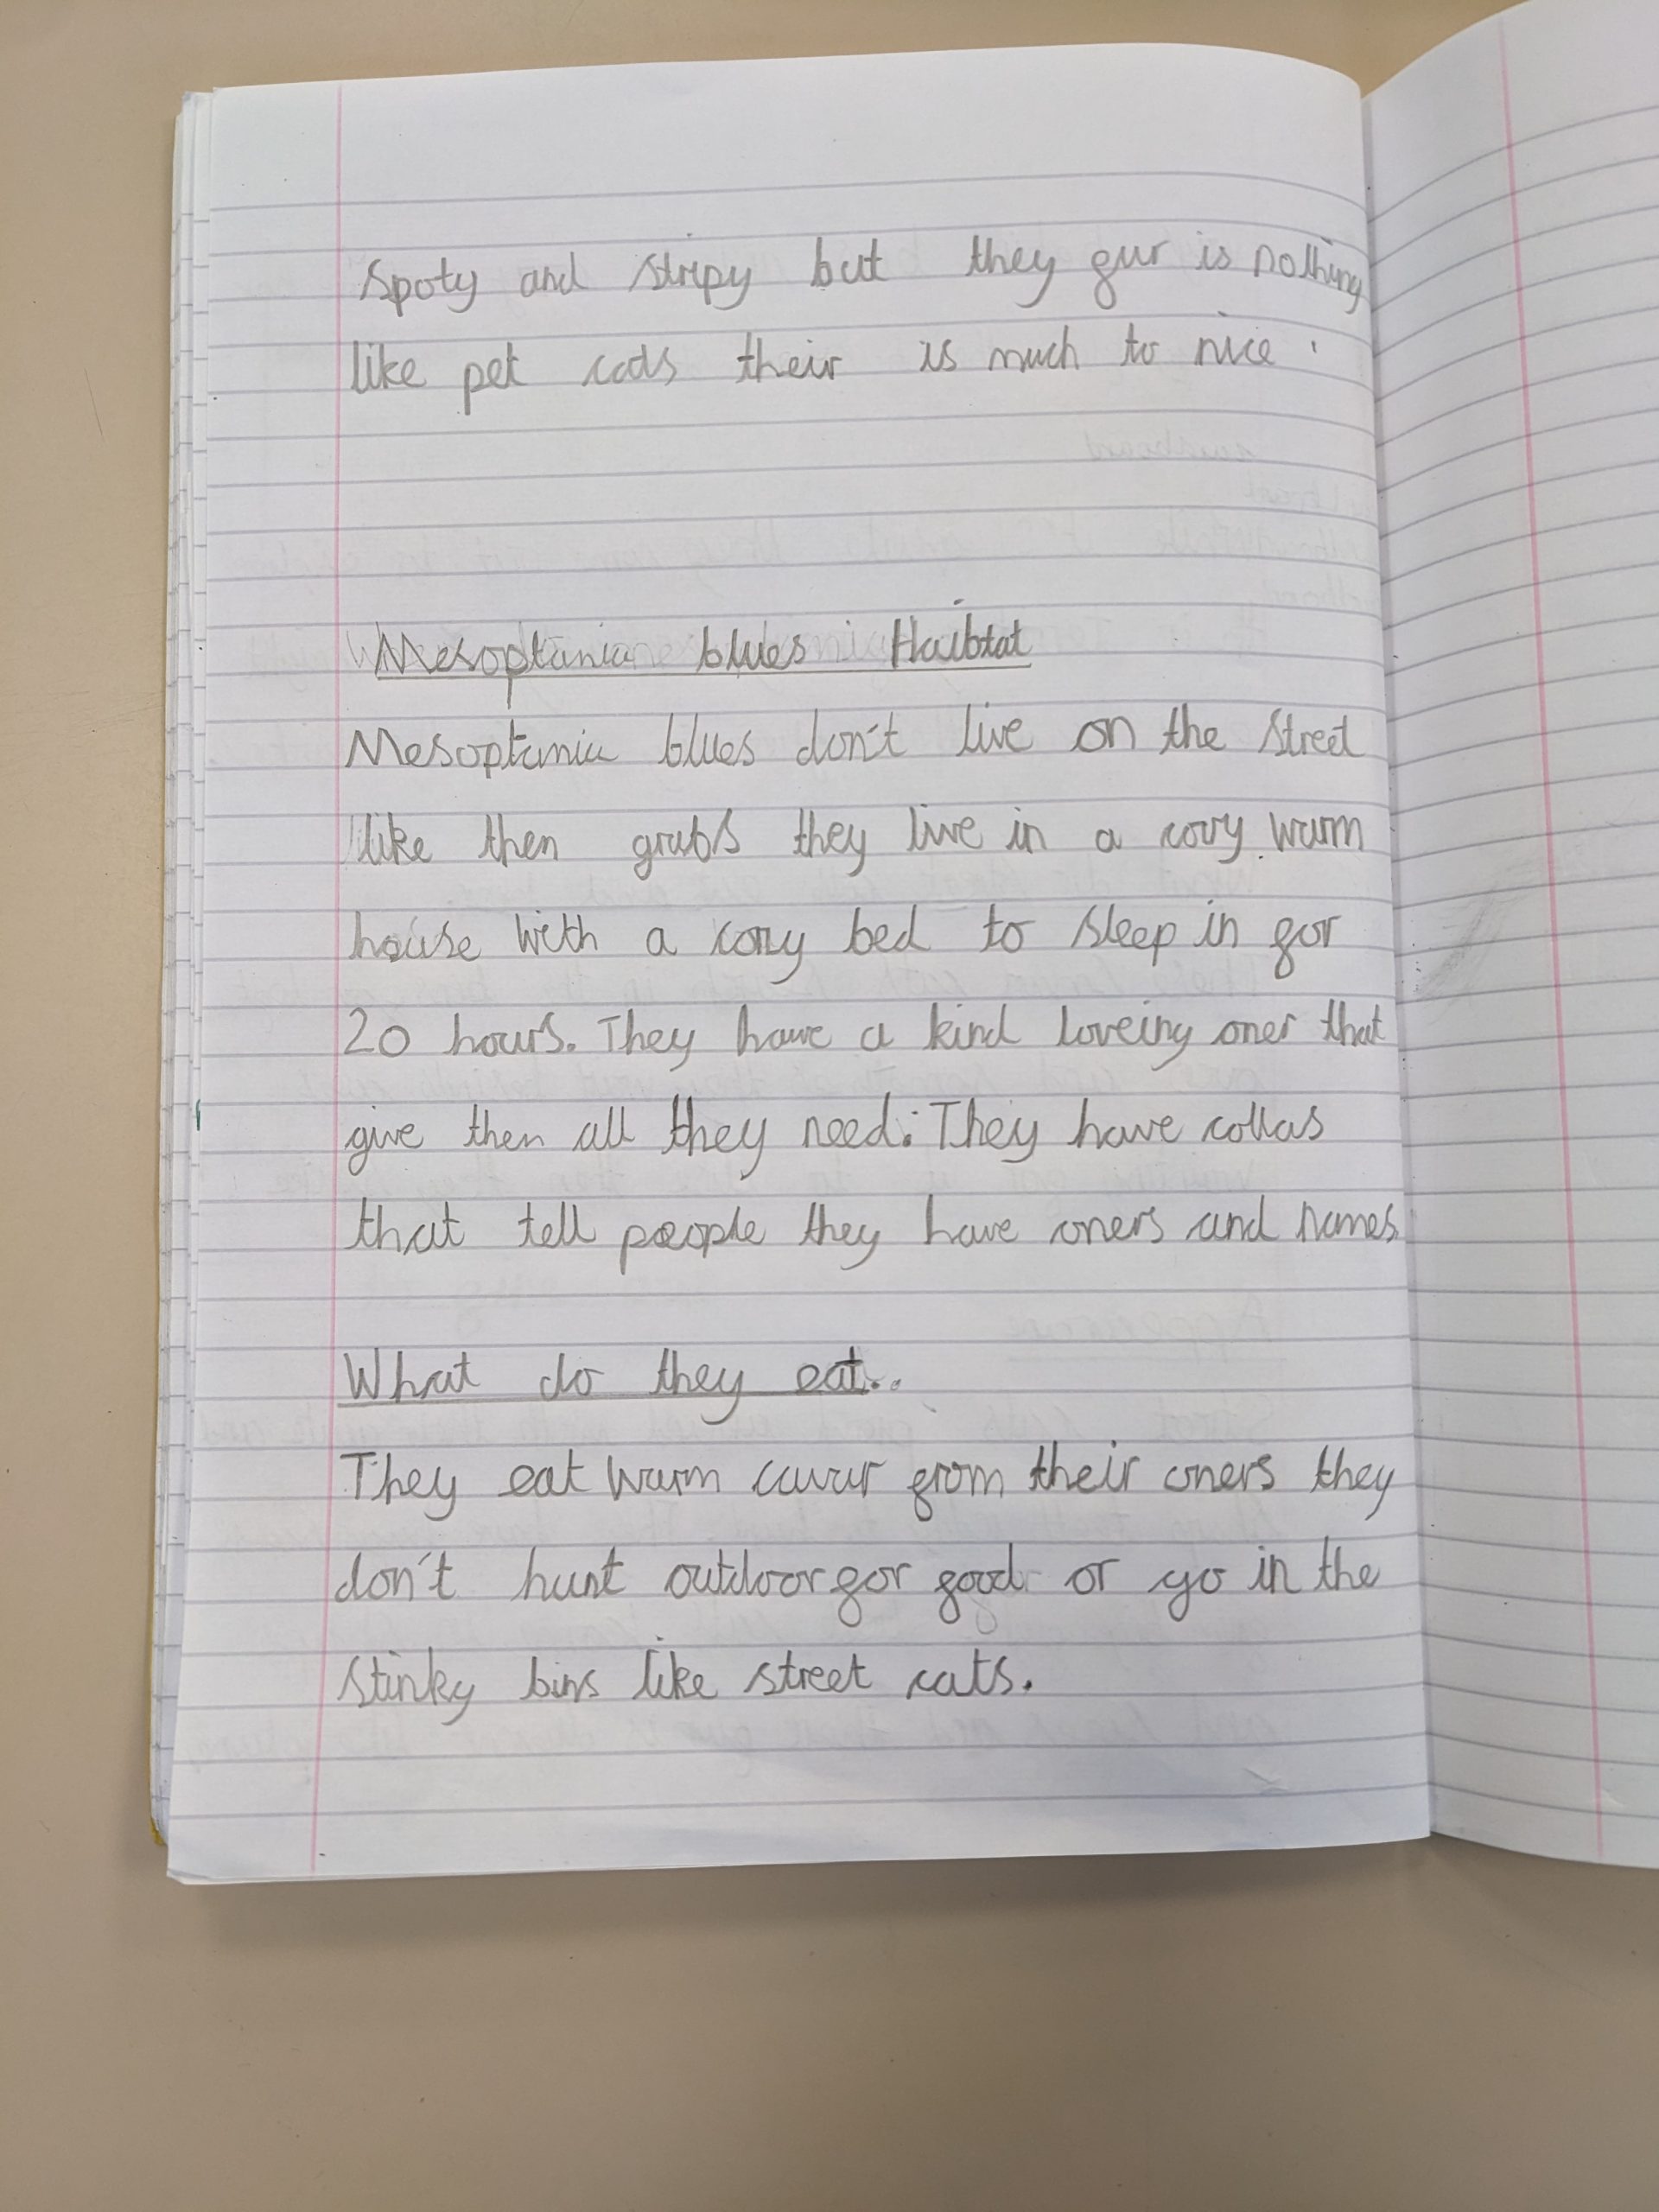 spoty and stripy but they fur is nothing
like pet cats their is much to nice.
Mesoptania blues Haibtat
Mesoptania blues don't live on the street
like then grubs they live in a cozy warm
house with a cozy bed to sleep in for
20 hours. They have a kind loveing oner that
give then all they need. They have collas
that tell people they have oners and names.
What do they eat..
They eat warm cavur from their oners they
don't hunt outdoor for food or go in the
stinky bins like street cats.